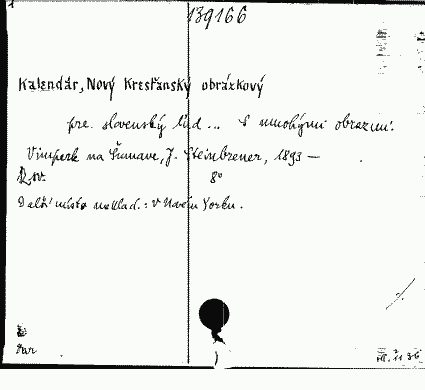 139166
Kalendár, Nový Kresťanský obrázkový
pre slovenský ľud ... S mnohými obrazmi.
Vimperk na Šumave, J. Steinbrener, 1893 —
8°
Další místo naklad.: v Novém Yorku.